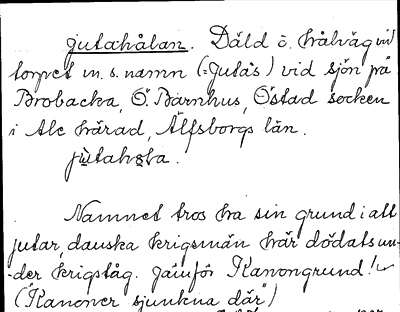 Jutahålan. Däld o. hålväg vid
torpet m. s. namn (=Jutås) vid sjön på
Brobacka, Ö. Barnhus, Östad socken
i Ale härad, Älfsborgs län.
jùtahɔla.
Namnet tros ha sin grund i att
jutar, danska krigsmän här dödats un-
der krigståg. Jämför Kanongrund!
("Kanoner sjunkna där")